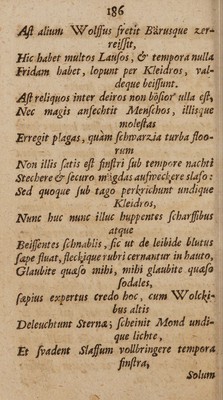 186
Ast alium Wolffus fretit Bärusque zer-
reissit,
Hic habet multos Lausos, & tempora nulla
Fridam habet, lopunt per Kleidros, val-
deque beissunt.
Ast reliquos inter deiros non bösior ulla est,
Nec magis ansechtit Menschos, illisque
molestas
Erregit plagas, quàm schwarzia turba floo-
rum
Non illis satis est finstri sub tempore nachti
Stechere & securo mägdas aufweckere slafo:
Sed quoque sub tago perkrichunt undique
Kleidros,
Nunc huc nunc illuc huppentes scharffibus
atque
Beissentes schnablis, sic ut de leibide blutus
sæpe fluat, fleckique rubri cernantur in hauto,
Glaubite quæso mihi, mihi glaubite quæso
sodales,
sæpius expertus credo hoc, cum Wolcki-
bus altis
Deleuchtunt Sternæ; scheinit Mond undi-
que lichte,
Et svadent Slaffum vollbringere tempora
finstra,
Solum